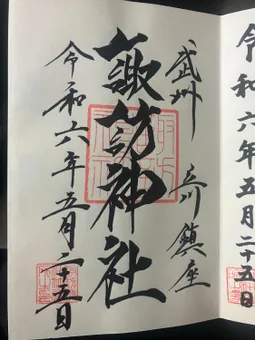 令和六年五月二十五日
武州 立川鎮座
諏訪神社
令和六年五月二十五日